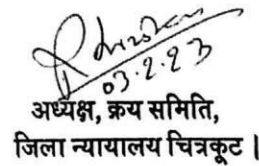 03.2.23
अध्यक्ष, क्रय समिति,
जिला न्यायालय चित्रकूट |